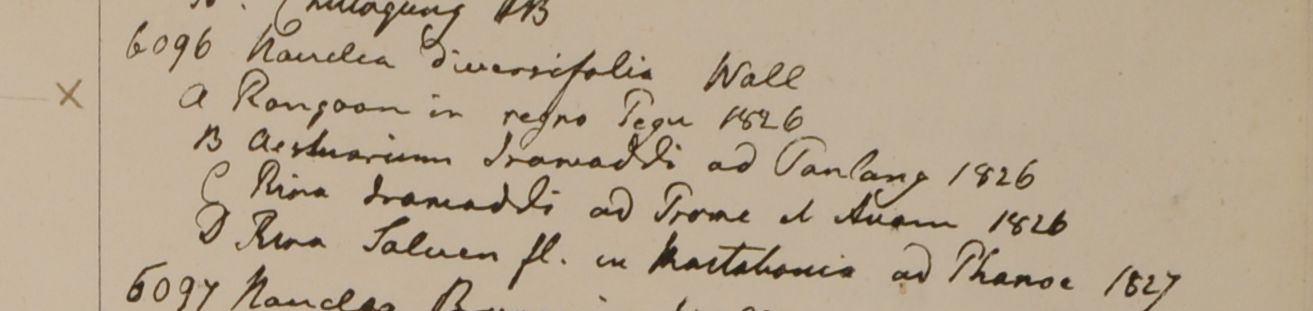 Chittagong HB
6096 Nauclea diversifolia Wall
A Rangoon in regno Pegu 1826
B Aestuarium Irawaddi ad Panlang 1826
C Ripa Irawaddi ad Prome et Avam 1826
D Ripa Saluen fl. in Martabania ad Phanoe 1827
6097 Nauclea